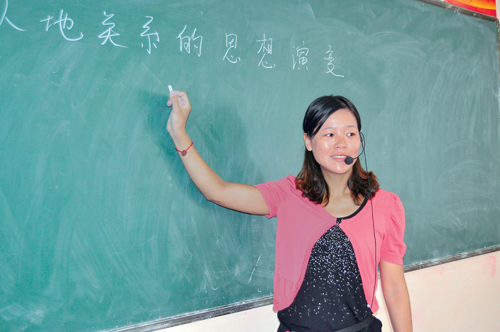 人地关系的思想演变